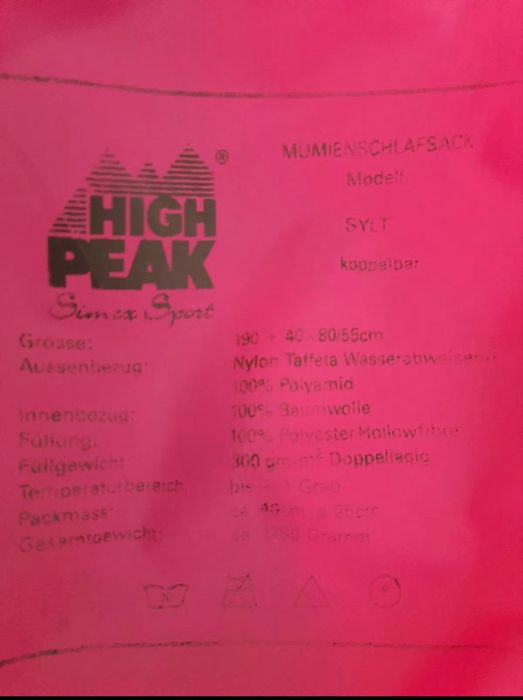 MUMIENSCHLAFSACK
Modell
SYLT
koppelbar
®
HIGH
PEAK
Simex Sport
Grösse: 190 + 40 × 80/55cm
Aussenbezug: Nylon Taffeta Wasserabweisend
100% Polyamid
Innenbezug: 100% Baumwolle
Füllung: 100% Polyester Hollowfibre
Füllgewicht: 300 gm/m² Doppellagig
Temperaturbereich: bis Grad
Packmass: ca. 25cm
Gesamtgewicht: ca. Gramm